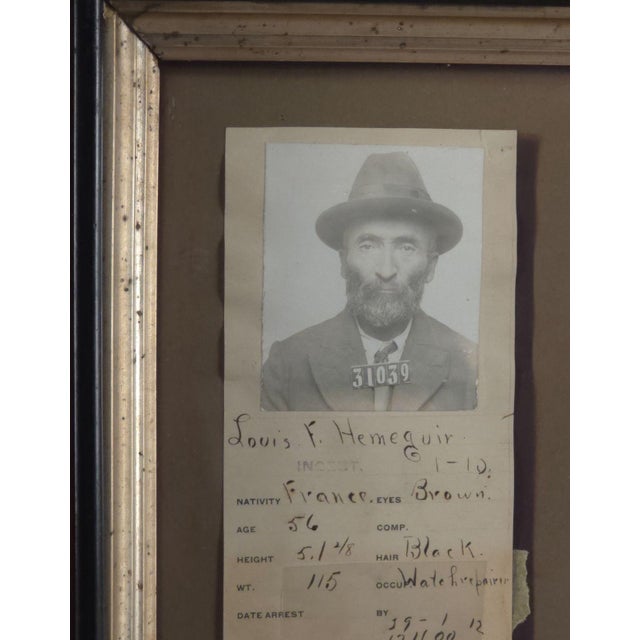 31039
Louis F. Hemeguir
INCEST. 1-10.
NATIVITY France. EYES Brown.
AGE 56 COMP.
HEIGHT 5.1 2/8 HAIR Black.
WT. 115 OCCU Watchrepairer
DATE ARREST BY
29-1 12